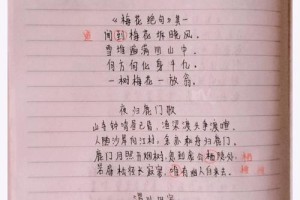 《梅花绝句》其一
闻到梅花坼晓风，
雪堆遍满四山中。
何方可化身千亿
一树梅花一放翁。
夜归鹿门歌
山寺钟鸣昼已昏，渔梁渡头争渡喧。
人随沙岸向江村，余亦乘舟归鹿门。
鹿门月照开烟树，忽到庞公栖隐处。
岩扉松径长寂寥，惟有幽人自来去。